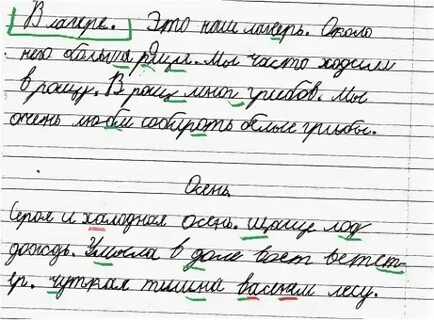 В лагере. Это наш лагерь. Около
него больша рища. Мы часто ходили
в рощу. В рощ мног грибов. Мы
очень любм собироть белые грибы.
Осень
Серая и халодная осень. щаще лод
дождь. Умокла в доле воет ветет
р. чуткая тишина васнам лесу.